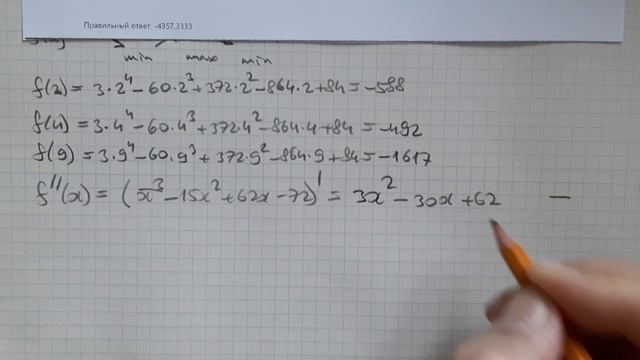 Правильный ответ: -4357,3333
min max min
f(2) = 3·2⁴ - 60·2³ + 372·2² - 864·2 + 84 = -588
f(4) = 3·4⁴ - 60·4³ + 372·4² - 864·4 + 84 = -492
f(9) = 3·9⁴ - 60·9³ + 372·9² - 864·9 + 84 = -1617
f''(x) = (x³ - 15x² + 62x - 72)' = 3x² - 30x + 62 —